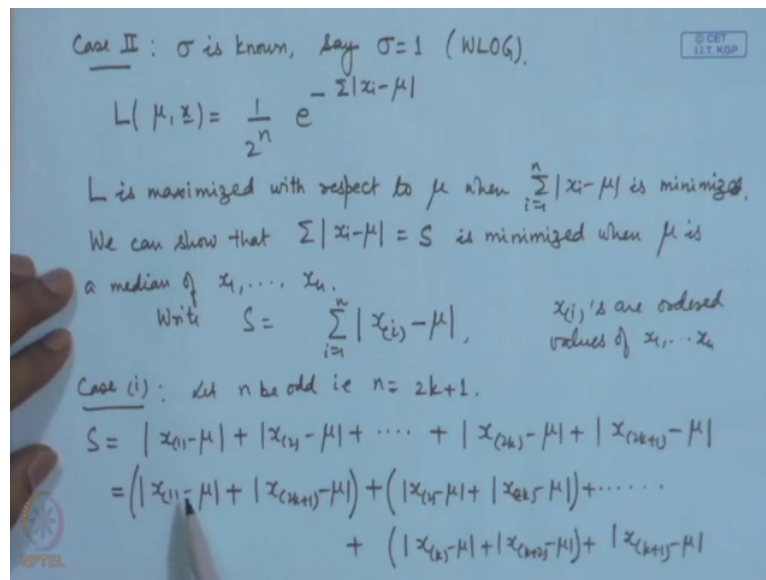 Case II : σ is known, say σ=1 (WLOG).
© CET
I.I.T. KGP
L(μ, x) = 1/2^n e^{-Σ|xi-μ|}
L is maximized with respect to μ when Σ_{i=1}^{n} |xi-μ| is minimized.
We can show that Σ|xi-μ| = S is minimized when μ is
a median of x1, .... xn.
Write S = Σ_{i=1}^{n} |x(i) - μ|, x(i)'s are ordered
values of x1, .. xn
Case (i) : Let n be odd ie n = 2k+1.
S = |x(1)-μ| + |x(2)-μ| + .... + |x(2k)-μ| + |x(2k+1)-μ|
= (|x(1)-μ| + |x(2k+1)-μ|) + (|x(2)-μ| + |x(2k)-μ|) + ......
+ (|x(k)-μ| + |x(k+2)-μ|) + |x(k+1)-μ|
NPTEL